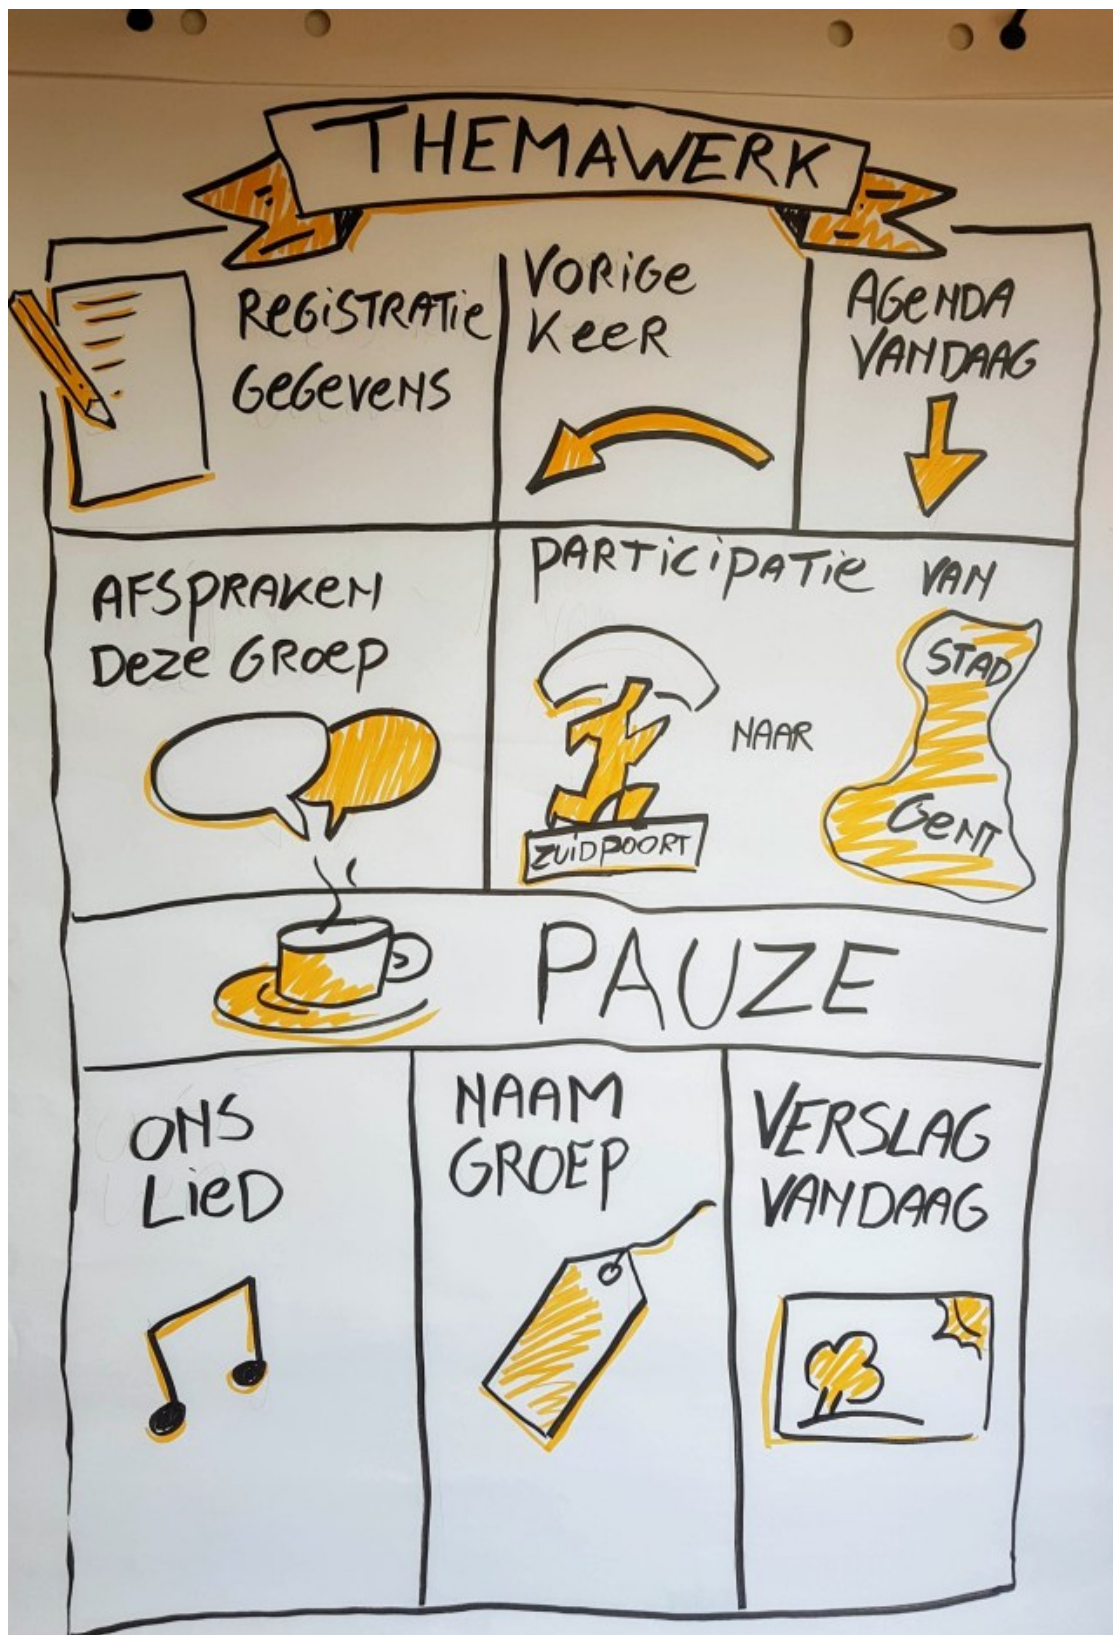 THEMAWERK
REGISTRATIE
GEGEVENS
VORIGE
KEER
AGENDA
VANDAAG
AFSPRAKEN
DEZE GROEP
PARTICIPATIE VAN
ZUIDPOORT
NAAR
STAD
GENT
PAUZE
ONS
LIED
NAAM
GROEP
VERSLAG
VANDAAG